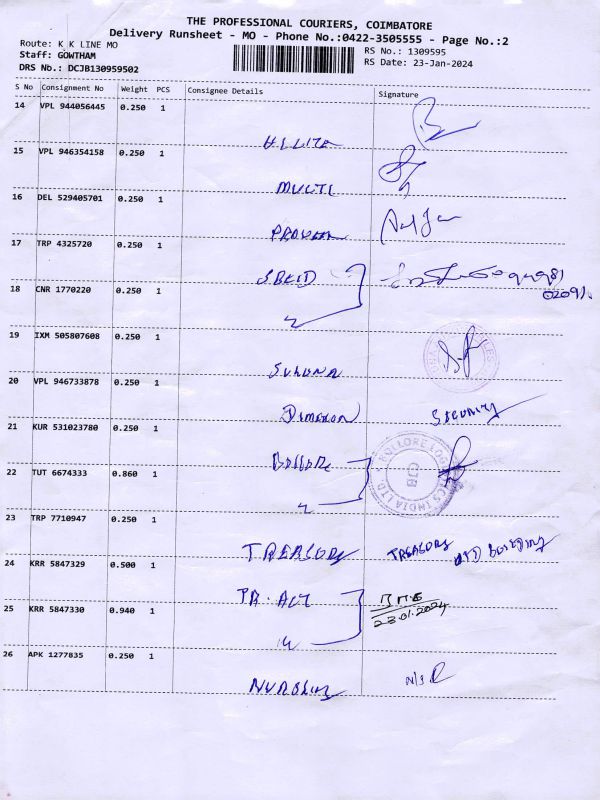 THE PROFESSIONAL COURIERS, COIMBATORE
Delivery Runsheet - MO - Phone No.:0422-3505555 - Page No.:2
Route: K K LINE MO
Staff: GOWTHAM
DRS No.: DCJB130959502
RS No.: 1309595
RS Date: 23-Jan-2024
S No Consignment No Weight PCS Consignee Details Signature
14 VPL 944056445 0.250 1
15 VPL 946354158 0.250 1
MULTI
16 DEL 529405701 0.250 1
17 TRP 4325720 0.250 1
18 CNR 1770220 0.250 1
19 IXM 505807608 0.250 1
SULUNA
20 VPL 946733878 0.250 1
Security
21 KUR 531023780 0.250 1
22 TUT 6674333 0.860 1
BOLLORE LOGISTICS INDIA LTD. CJB
23 TRP 7710947 0.250 1
TREASORY TREASORY OLD BUILDING
24 KRR 5847329 0.500 1
PR. ACT
25 KRR 5847330 0.940 1
23.01.2024
26 APK 1277835 0.250 1